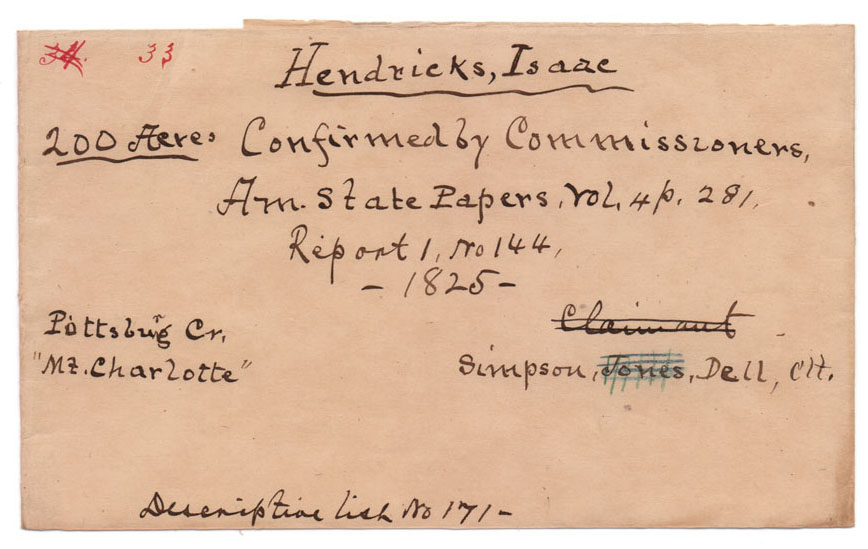 34. 33
Hendricks, Isaac
200 Acres Confirmed by Commissioners,
Am. State Papers, Vol. 4 p. 281,
Report 1, No 144,
- 1825 -
Pottsburg Cr.
"Mt. Charlotte"
Claimant
Simpson, Jones, Dell, Clt.
Descriptive list No 171-